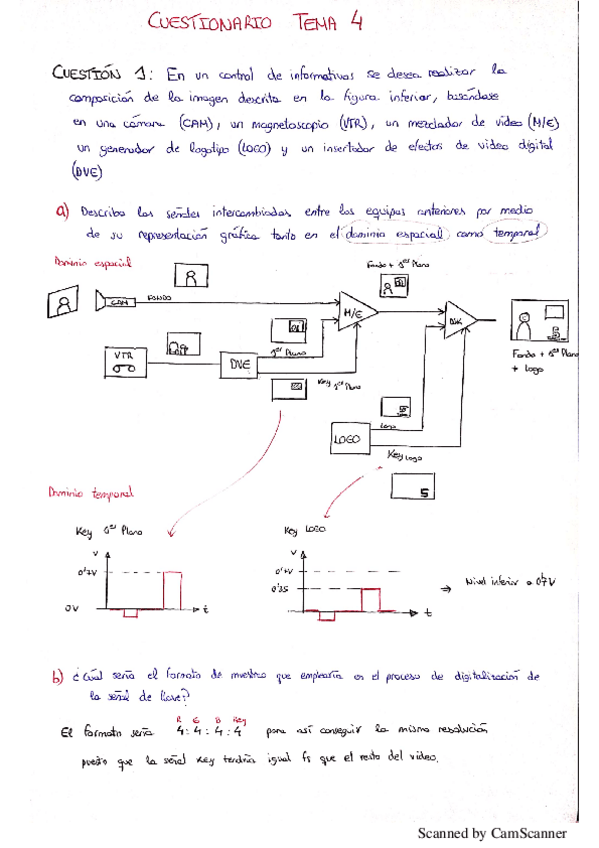 CUESTIONARIO TEMA 4
CUESTIÓN 1: En un control de informativos se desea realizar la
composición de la imagen descrita en la figura inferior, basándose
en una cámara (CAM), un magnetoscopio (VTR), un mezclador de vídeo (M/E)
un generador de logotipo (LOGO) y un insertador de efectos de video digital
(DVE)
a) Describa las señales intercambiadas entre los equipos anteriores por medio
de su representación gráfica tanto en el dominio espacial como temporal
Dominio espacial
Fondo + 1er Plano
CAM
FONDO
M/E
DSK
VTR
DVE
1er Plano
Fondo + 1er Plano
+ Logo
Key 1er Plano
LOGO
Logo
Key Logo
5
Dominio temporal
Key 1er Plano
Key LOGO
V
V
0'7V
0'7V
0'35
⇒ Nivel inferior a 0'7V
0V
t
t
b) ¿Cuál sería el formato de muestreo que emplearía en el proceso de digitalización de
la señal de llave?
R G B Key
El formato sería 4:4:4:4 para así conseguir la misma resolución
puesto que la señal Key tendría igual fs que el resto del video.
Scanned by CamScanner